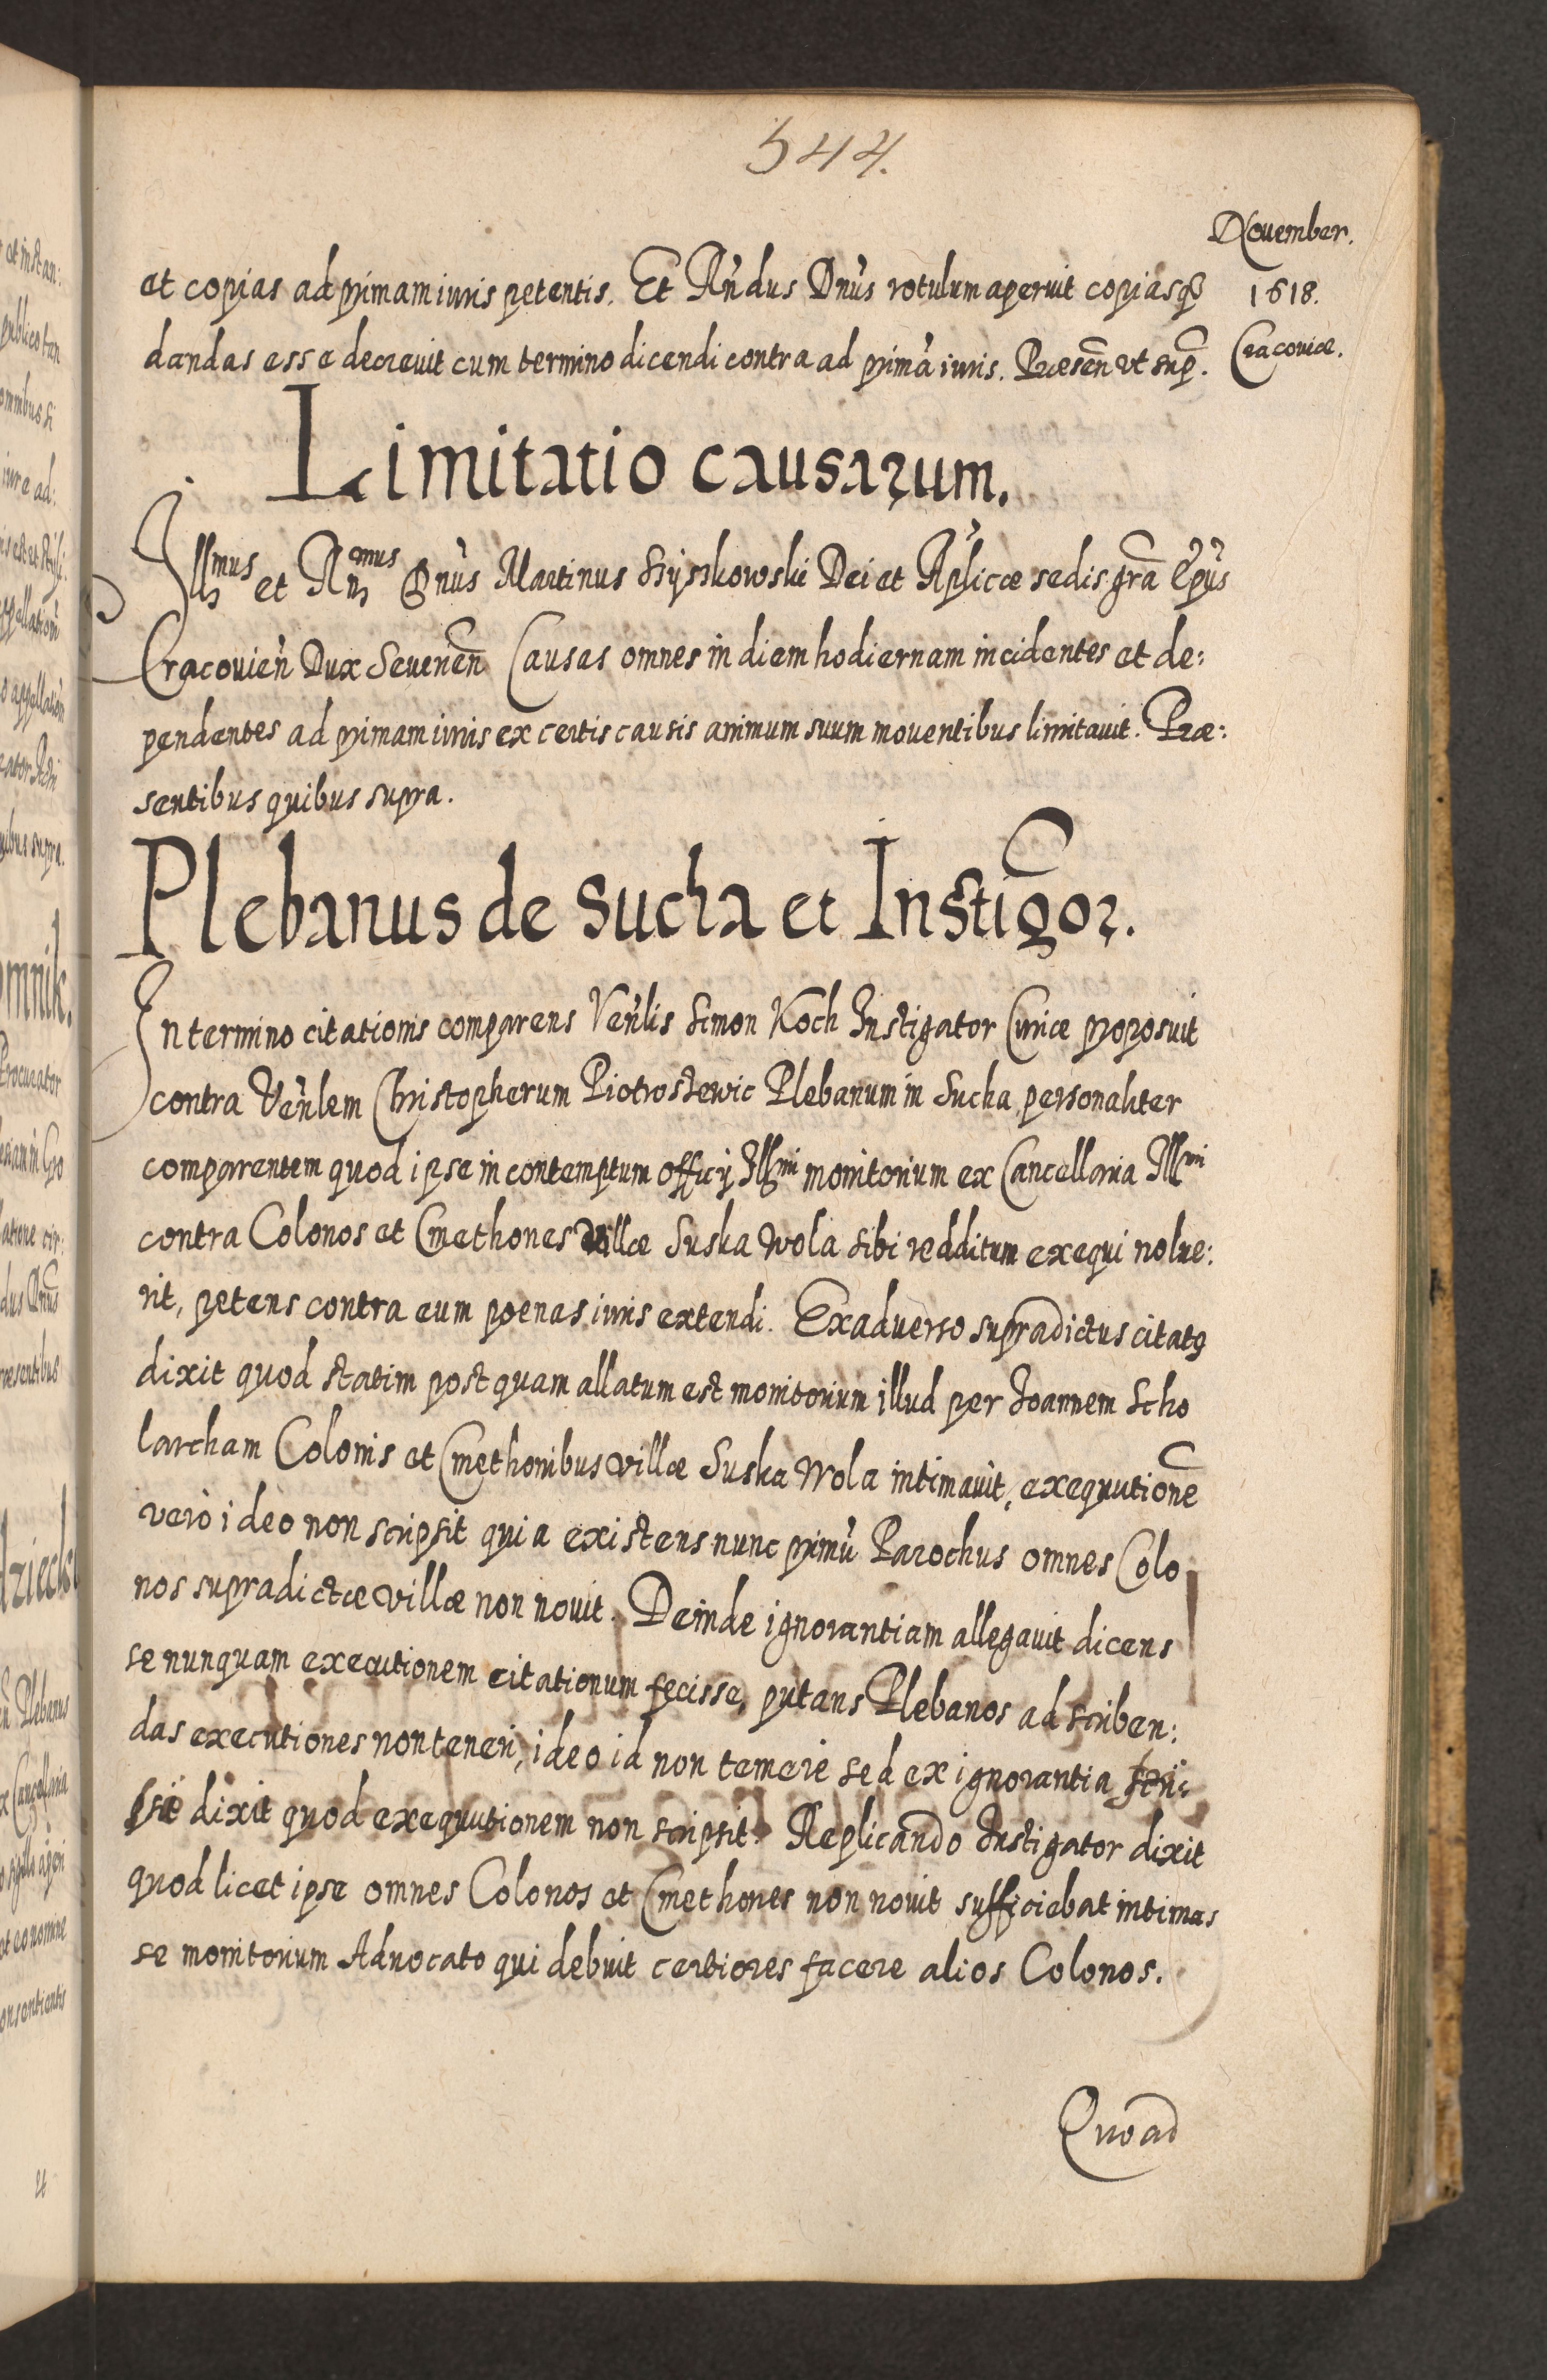 544.
November.
et copias ad primam iuris petentis. Et Rńdus Dńus rotulum aperuit copiasq
1618.
dandas esse decrevit cum termino dicendi contra ad primā iuris. Præsen̄ vt sup̄.
Cracoviæ.
Limitatio causarum.
Illmus et Rnmus Dńus Martinus Szyszkowski Dei et Aplicæ sedis gr̄a Epūs
Cracovień Dux Severien̄ Causas omnes in diem hodiernam incidentes et de:
pendentes ad primam iuris ex certis causis animum suum moventibus limitavit. Præ:
sentibus quibus supra.
Plebanus de Sucha et Instig̅or.
In termino citationis comparens Veńlis Simon Koch Instigator Curiæ proposuit
contra Veńlem Christopherum Piotrostewic Plebanum in Sucha personaliter
comparentem quod ipse in contemptum officij Illmi monitorium ex Cancellaria Illmi
contra Colonos et Cmethones villæ Suska Wola sibi redditum exequi nolue:
rit, petens contra eum poenas iuris extendi. Exadverso supradictus citatq
dixit quod statim postquam allatum est monitorium illud per Joannem Scho
larcham Colonis et Cmethonibus villæ Suska Wola intimavit, exequutionē
verò ideo non scripsit quia existens nunc primū Parochus omnes Colo
nos supradictæ villæ non novit. Deinde ignorantiam allegavit dicens
se nunquam executionem citationum fecisse, putans Plebanos ad scriben:
das executiones non teneri, ideo id non temere sed ex ignorantia scri:
psit dixit quod exequutionem non scripsit. Replicando Instigator dixit
quod licet ipse omnes Colonos et Cmethones non novit sufficiebat intimas
se monitorium Advocato qui debuit certiores facere alios Colonos.
Quoad